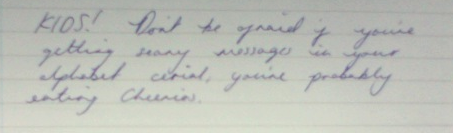 KIDS! Don't be afraid if you're
getting scary messages in your
alphabet cerial, you're probably
eating Cheerios.